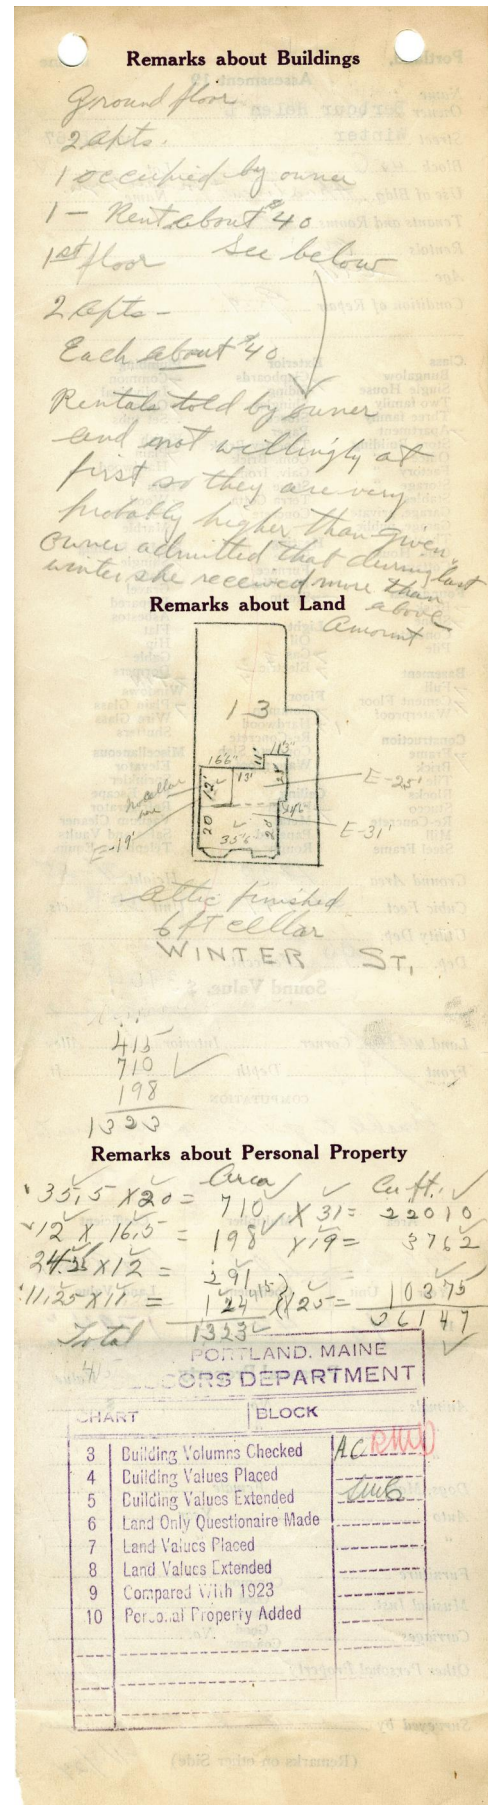 Remarks about Buildings
Ground floor
2 apts.
1 occupied by owner
1 - Rent about $40
1st floor see below
2 apts -
Each about $40
Rentals told by owner
and not willingly at
first so they are very
probably higher than given.
Owner admitted that during last
winter she received more than
above
Amount
Remarks about Land
13
16'6"
11'
11'3"
12'
13'
E-25'
no cellar
20
20
35'6
E-31'
=-19'
attic finished
6 ft cellar
WINTER ST.
415
710
198
1323
Remarks about Personal Property
Area Cu ft.
35.5 X 20 = 710 X 31 = 22010
12 X 16.5 = 198 X 19 = 3762
X 12 = 291
11.25 X 11 = 124 415 X 25 = 10375
Total 1323 36147
PORTLAND, MAINE
SORS DEPARTMENT
CHART BLOCK
3 Building Volumns Checked AC
4 Building Values Placed
5 Building Values Extended
6 Land Only Questionaire Made
7 Land Values Placed
8 Land Values Extended
9 Compared With 1923
10 Personal Property Added